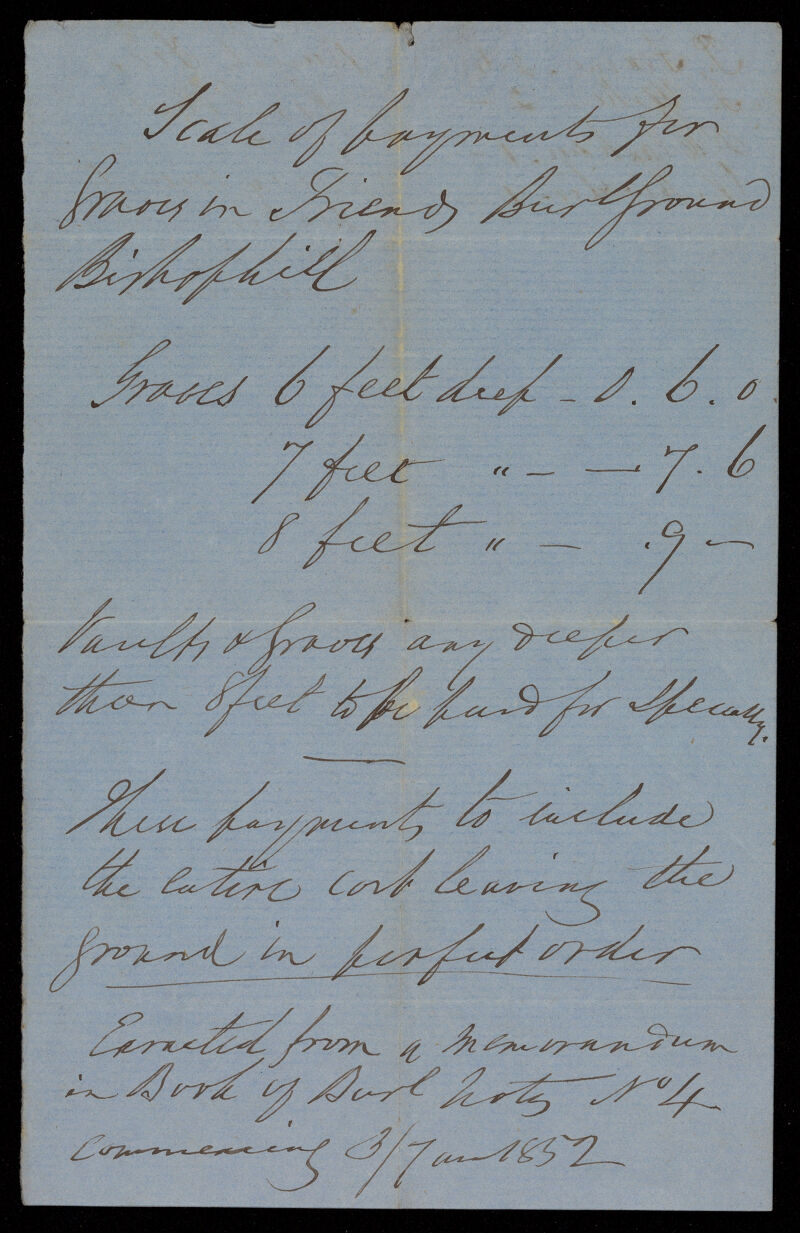 Scale of payments for
Graves in Friends Burl Ground
Bishophill
Graves 6 feet deep - 0. 6. 0
7 feet " - - 7. 6
8 feet " - . 9 -
Vaults & Graves any deeper
than 8 feet to be paid for specially.
These payments to include
the entire cost leaving the
ground in perfect order
from a memorandum
in Book of Burl Notes No 4
commencing 3/7 1852